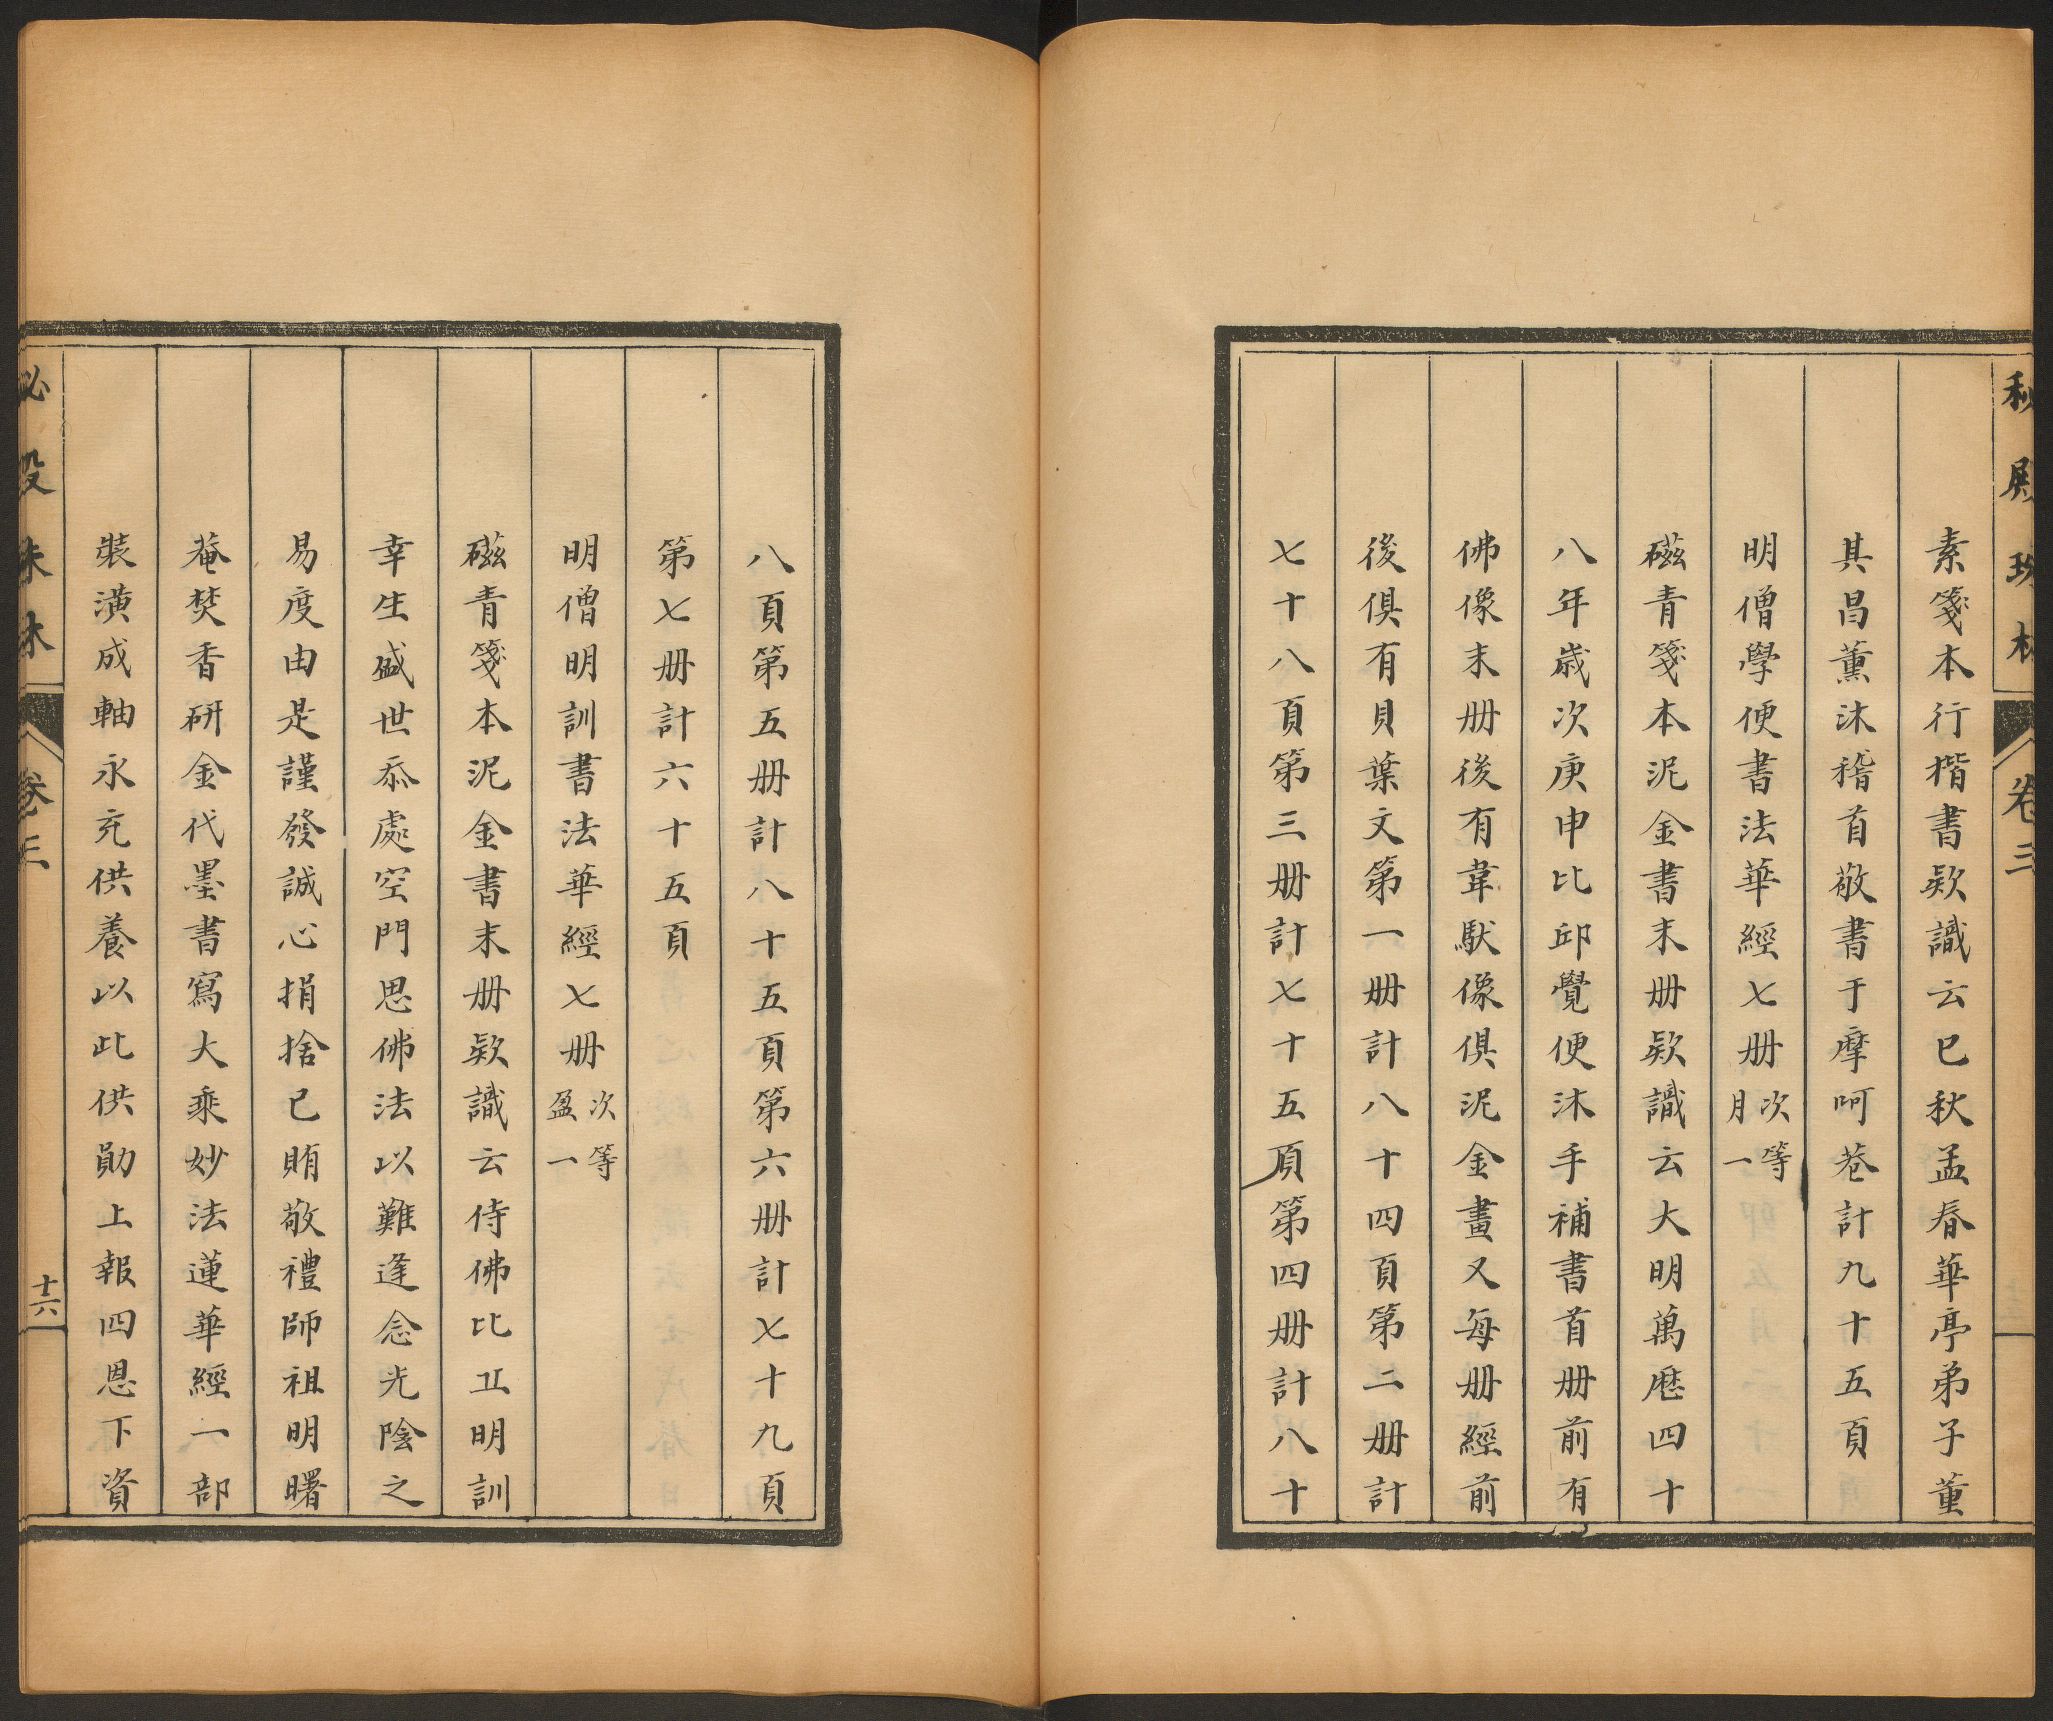 秘殿珠林 卷三
素箋本行楷書欵識云已秋孟春華亭弟子董
其昌薰沐稽首敬書于摩呵菴計九十五頁
明僧學便書法華經七册 次等 月一
磁青箋本泥金書末册欵識云大明萬歴四十
八年歲次庚申比邱覺便沐手補書首册前有
佛像末册後有韋馱像俱泥金畫又每册經前
後俱有貝葉文第一册計八十四頁第二册計
七十八頁第三册計七十五頁第四册計八十
八頁第五册計八十五頁第六册計七十九頁
第七册計六十五頁
明僧明訓書法華經七册 次等 盈一
磁青箋本泥金書末册欵識云侍佛比丘明訓
幸生盛世忝處空門思佛法以難逢念光陰之
易度由是謹發誠心捐捨已賄敬禮師祖明曙
菴焚香研金代墨書寫大乘妙法蓮華經一部
裝潢成軸永充供養以此供勛上報四恩下資
秘殿珠林 卷三 十六